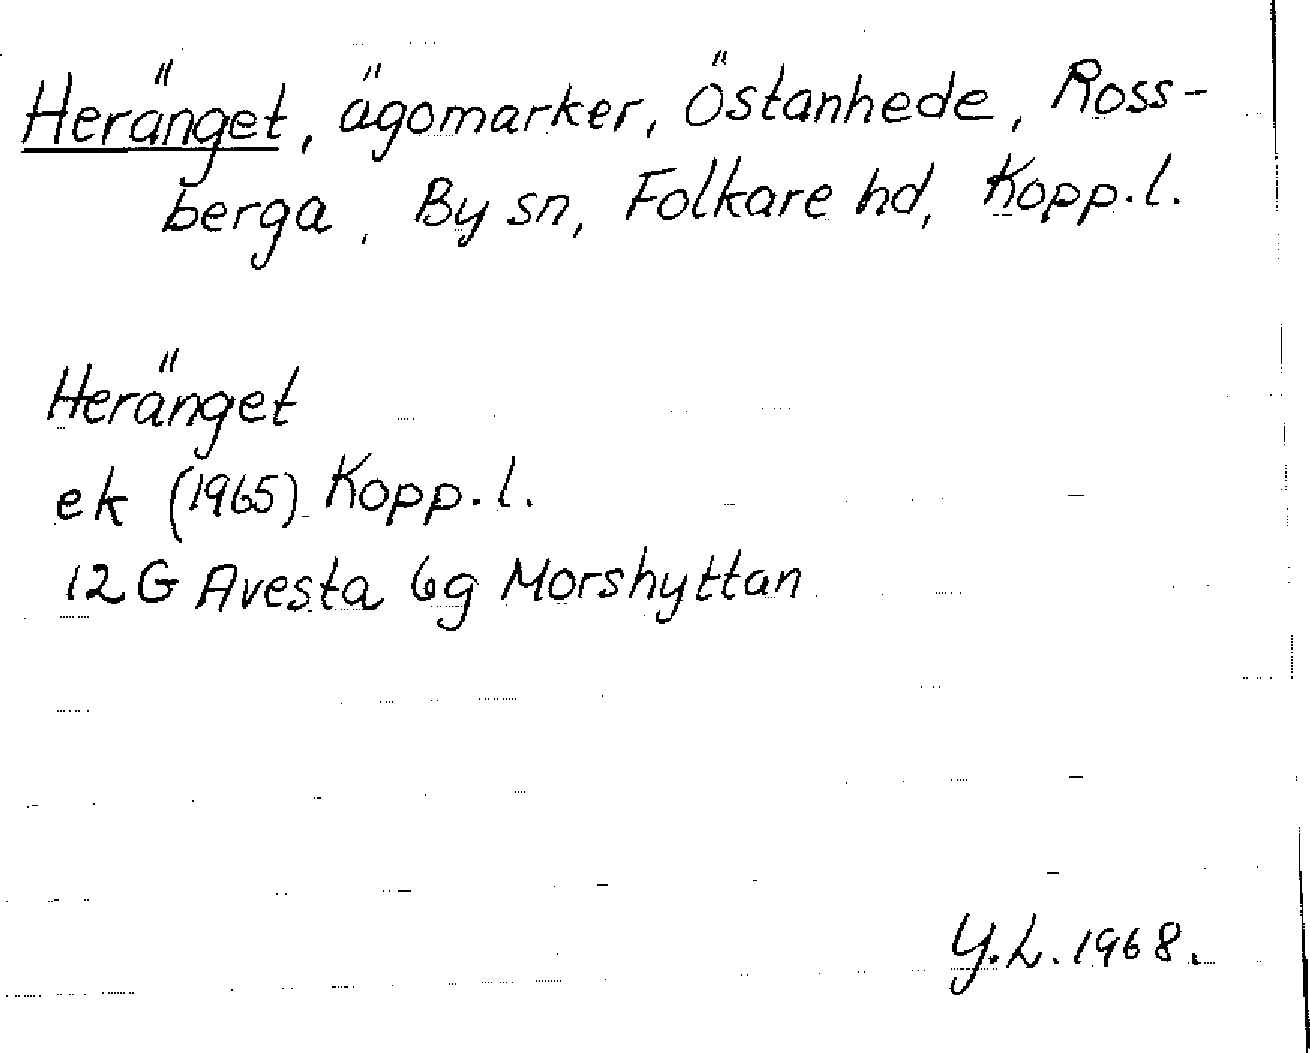 Heränget, ägomarker, Östanhede, Ross-
berga, By sn, Folkare hd, Kopp.l.
Heränget
ek (1965) Kopp.l.
12G Avesta 6g Morshyttan
Y.L. 1968.